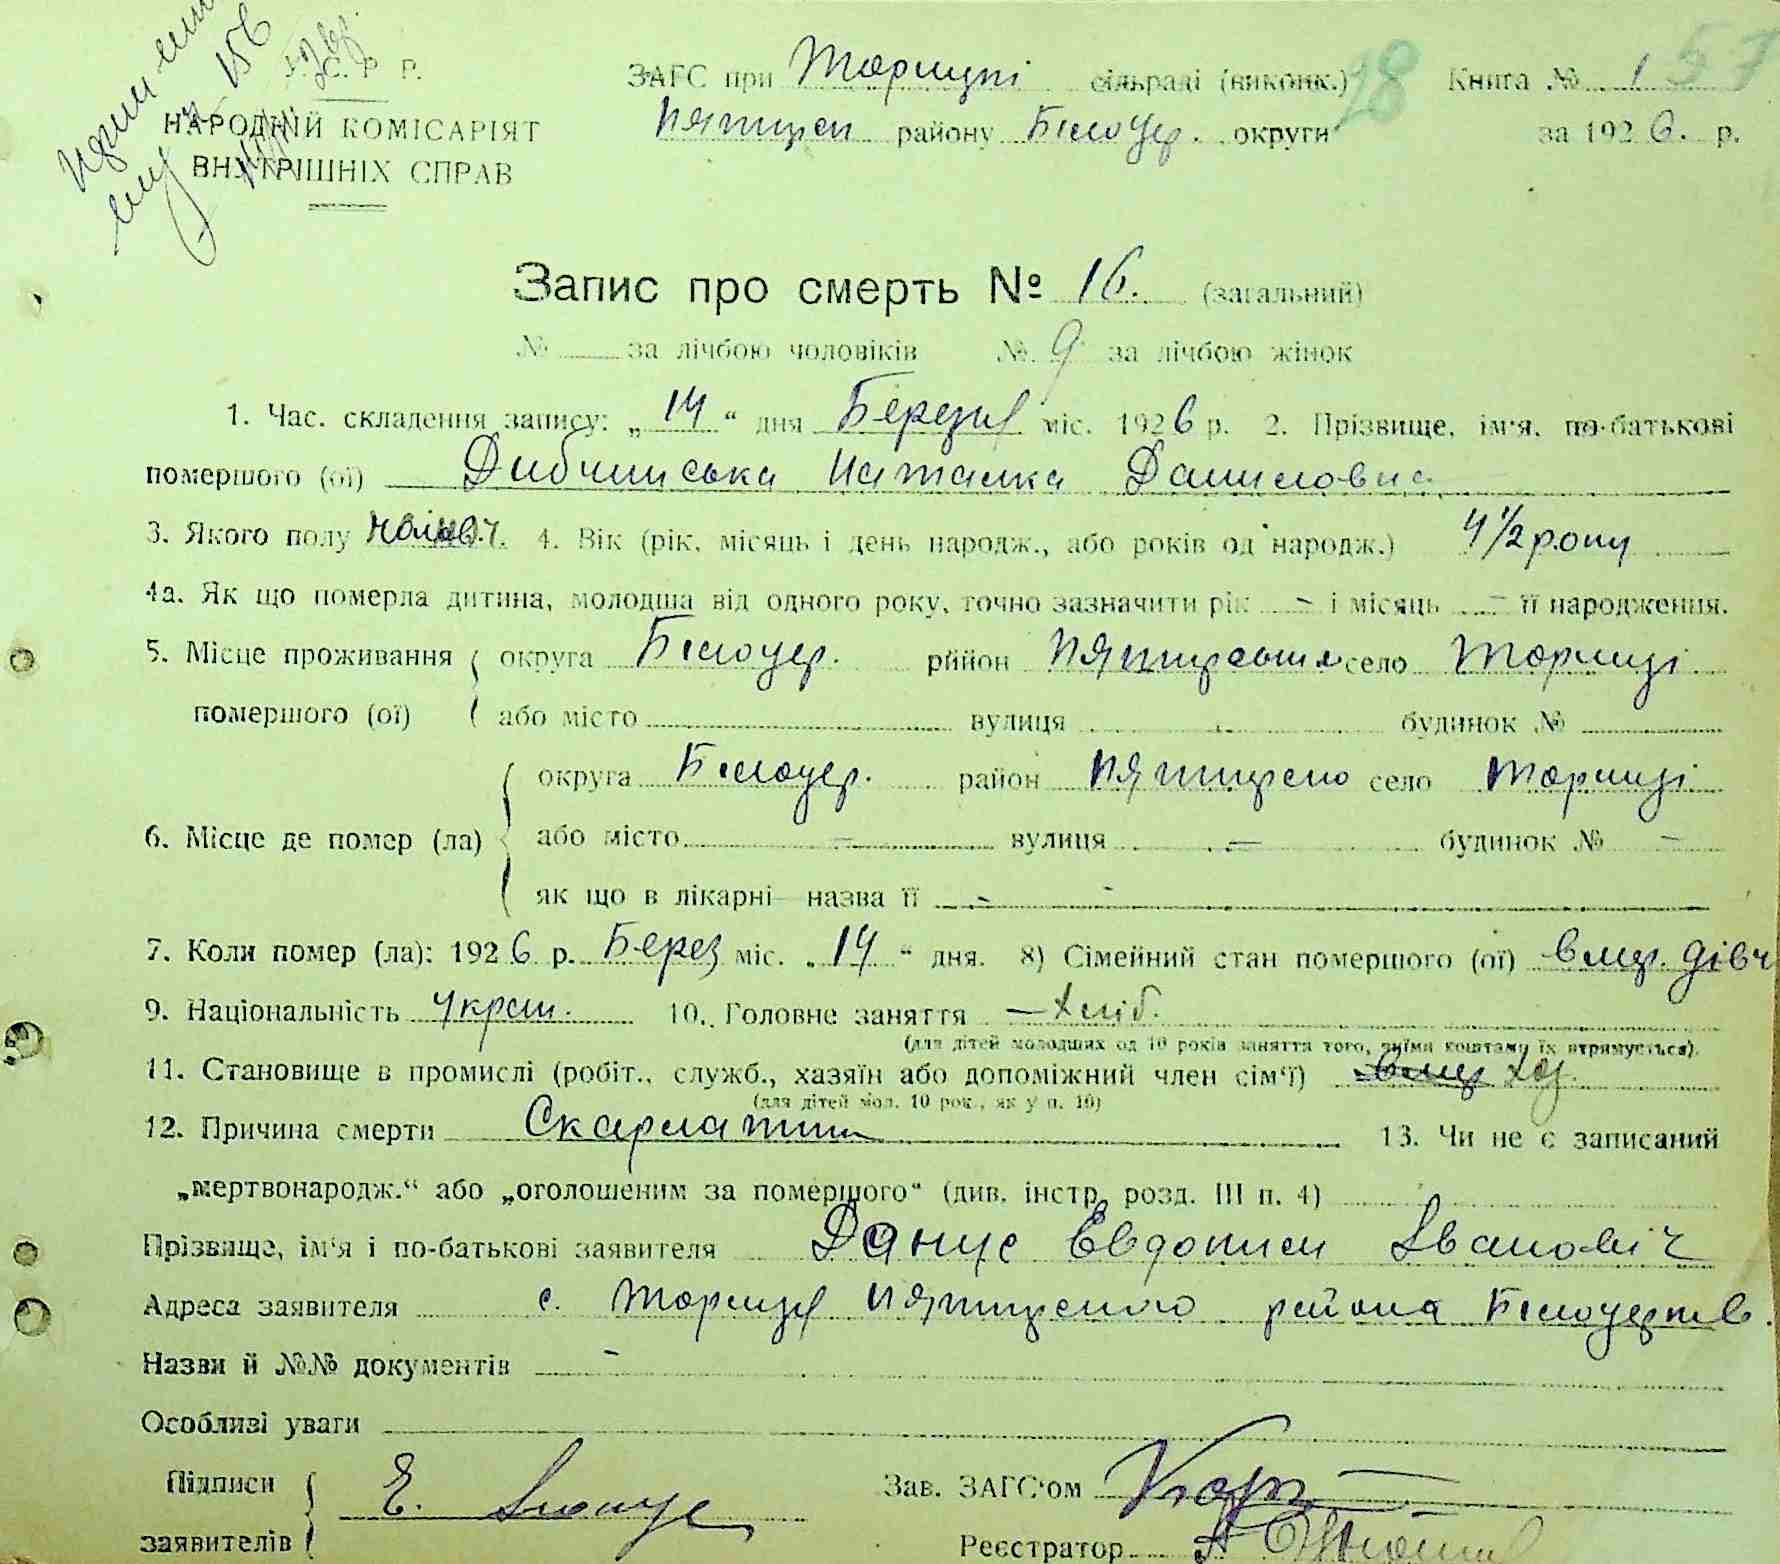 У. С. Р. Р.
НАРОДНІЙ КОМІСАРІЯТ
ВНУТРІШНІХ СПРАВ
156
ЗАГС при Торицькі сільраді (виконк.) 18 Книга № 1 57
району Білоцер. округи за 1926. р.
Запис про смерть № 16. (загальний)
№ за лічбою чоловіків № 9 за лічбою жінок
1. Час. складення запису: „14“ дня Березня міс. 1926 р. 2. Прізвище, ім'я, по-батькові
помершого (ої) Наталка Даниловна
3. Якого полу 4. Вік (рік, місяць і день народж., або років од народж.) 4 1/2 року
4а. Як що померла дитина, молодша від одного року, точно зазначити рік – і місяць – її народження.
5. Місце проживання округа Білоцер. район село Ториці
помершого (ої) або місто вулиця будинок №
6. Місце де помер (ла) округа Білоцер. район село Ториці
або місто – вулиця – будинок № –
як що в лікарні– назва її –
7. Коли помер (ла): 1926 р. Берез міс. „14“ дня. 8) Сімейний стан помершого (ої) дівч
9. Національність Україн. 10. Головне заняття – Хліб.
(для дітей молодших од 10 років заняття того, чиїми коштами їх втримується).
11. Становище в промислі (робіт., служб., хазяїн або допоміжний член сім'ї) хаз.
(для дітей мол. 10 рок., як у п. 10)
12. Причина смерти Скарлатина 13. Чи не є записаний
„мертвонародж.“ або „оголошеним за помершого“ (див. інстр. розд. III п. 4)
Прізвище, ім'я і по-батькові заявителя Іванович
Адреса заявителя с. Ториця района
Назви й №№ документів –
Особливі уваги
Підписи
заявителів Е.
Зав. ЗАГС'ом
Реєстратор